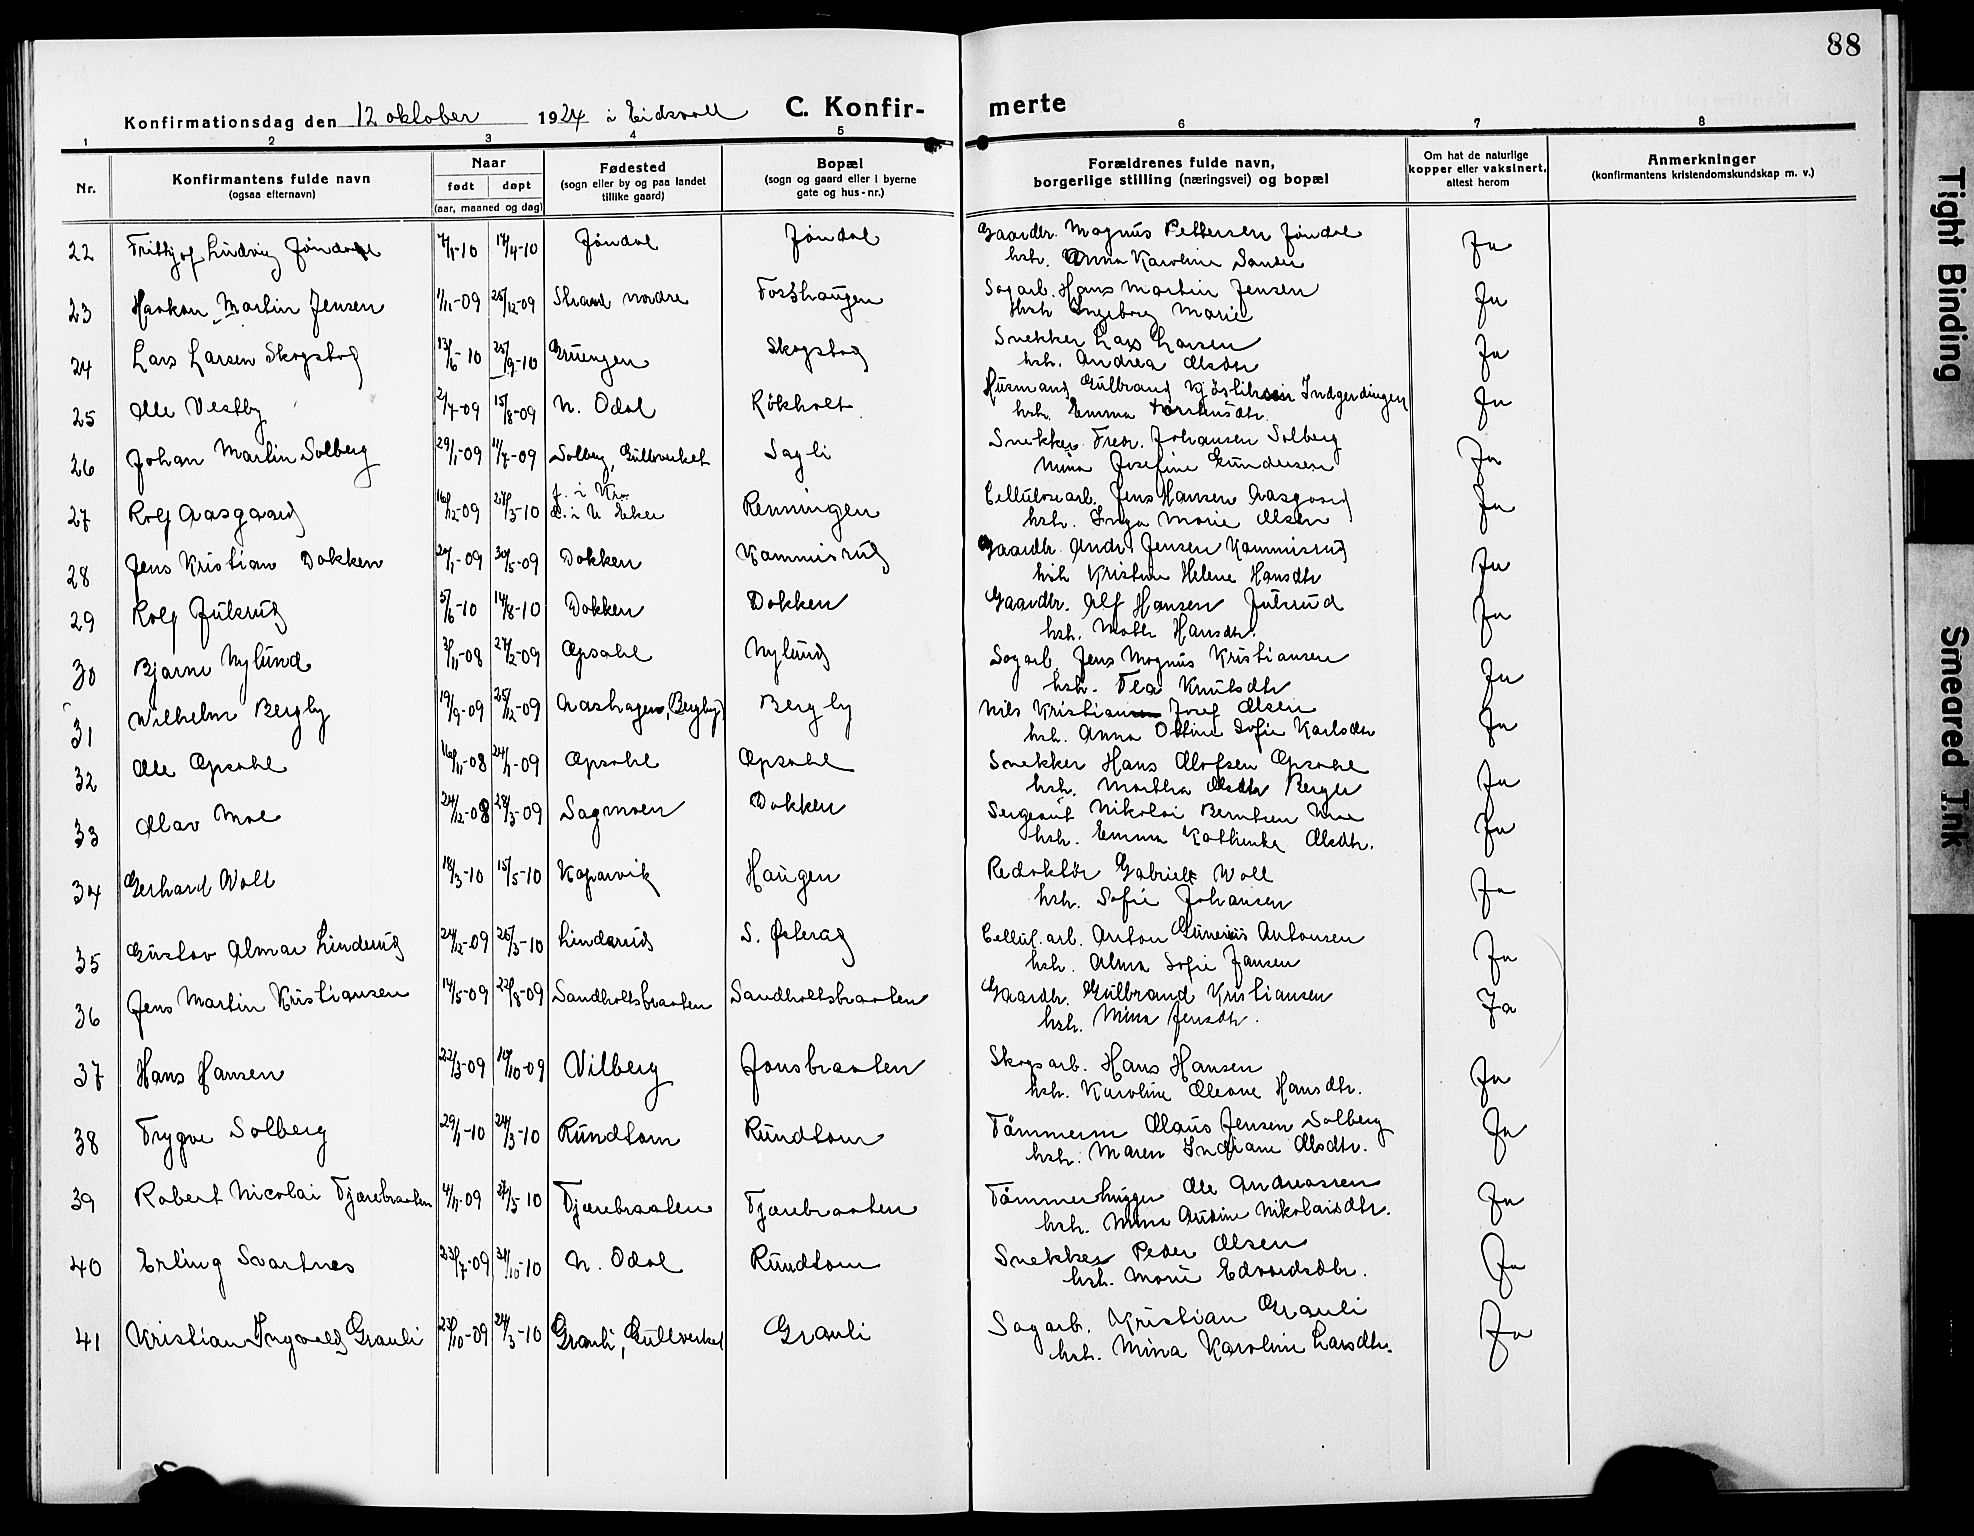 88
Konfirmationsdag den 12 oktober 1924 i Eidsvoll C. Konfirmerte
1 2 3 4 5 6 7 8
Nr. | Konfirmantens fulde navn (ogsaa efternavn) | Naar født døpt (aar, maaned og dag) | Fødested (sogn eller by og paa landet tillike gaard) | Bopæl (sogn og gaard eller i byerne gate og hus-nr.) | Forældrenes fulde navn, borgerlige stilling (næringsvei) og bopæl | Om hat de naturlige kopper eller vaksinert, attest herom | Anmerkninger (konfirmantens kristendomskundskap m. v.)
22 Frithjof Ludvig Jøndal -10 17/4-10 Jøndal Jøndal Gaardbr. Magnus Pettersen Jøndal Ja
hstr. Anna Karoline
23 Haakon Martin Jensen 1/11-09 26/12-09 Strand nordre Fosshaugen Sagarb. Hans Martin Jensen Ja
Hstr Ingeborg Marie
24 Lars Larsen Skogstad 13/6-10 25/9-10 Skogstad Snekker Lars Larsen Ja
hstr. Andrea Olsdtr
25 Ole Vestby 2/7-09 15/8-09 N. Odal Røkholt Husmand Gulbrand Ja
hstr. Emma
26 Johan Martin Solberg 29/1-09 11/7-09 Solberg, Gullverket Sagli Snekker Fredr. Johansen Solberg Ja
Mina Josefine Gundersen
27 Rolf Aasgaard 16/12-09 27/3-10 f. i Kra. d. i N. Eker Renningen Cellulosearb. Jens Hansen Aasgaard Ja
hstr. Inga Marie Olsen
28 Jens Kristian Dokken 20/1-09 30/5-09 Dokken Kammisrud Gaardbr. Andr. Jensen Kammisrud Ja
hstr Kristine Helene Hansdtr
29 Rolf Julsrud 5/6-10 14/8-10 Dokken Dokken Gaardbr. Alf Hansen Julsrud Ja
hstr. Hansdtr.
30 Bjarne Nylund 3/11-08 27/2-09 Opsahl Nylund Sagarb. Jens Magnus Kristiansen Ja
hstr. Tea Knutsdtr
31 Wilhelm Bergby 19/9-09 25/12-09 Aashagen, (Bergby) Bergby Nils Kristian Josef Olsen Ja
hstr. Anna Ottine Sofie Karlsdtr
32 Ole Opsahl 16/11-08 24/1-09 Opsahl Opsahl Snekker Hans Olofsen Opsahl Ja
hstr. Martha Olsdtr Berger
33 Olav Moe 24/12-08 28/3-09 Sagmoen Dokken Sergeant Nikolai Berntsen Moe Ja
hstr. Emma Kathinka Olsdtr.
34 Gerhard Woll 18/3-10 15/5-10 Kopervik Haugen Redaktør Gabriel Woll Ja
hstr. Sofie Johansen
35 Gustav Almar Linderud 24/12-09 26/3-10 Linderud S. Østerud Cellul. arb. Anton Gunerius Antonsen Ja
hstr. Alma Sofie Jansen
36 Jens Martin Kristiansen 14/5-09 22/8-09 Sandholtsbraaten Sandholtsbraaten Gaardbr. Gulbrand Kristiansen Ja
hstr. Mina Jensdtr.
37 Hans Hansen 22/3-09 10/10-09 Vilberg Jonsbraaten Skogsarb. Hans Hansen Ja
hstr. Karoline Oleane Hansdtr.
38 Trygve Solberg 29/1-10 24/3-10 Rundtom Rundtom Tømmerm Olaus Jensen Solberg Ja
hstr. Maren Indiane Olsdtr.
39 Robert Nicolai Tjærebraaten 4/11-09 27/3-10 Tjærebraaten Tjærebraaten Tømmerhugger Ole Andreassen Ja
hstr. Mina Audine Nikolaisdtr.
40 Erling Svartnes 23/7-09 31/10-10 N. Odal Rundtom Snekker Peder Olsen Ja
hstr. Marie Edvardsdtr.
41 Kristian Ingvald Grauli 23/10-09 24/3-10 Grauli, Gullverket Grauli Sagarb. Kristian Grauli Ja
hstr. Mina Karoline Larsdtr.
Tight Binding
Smeared Ink